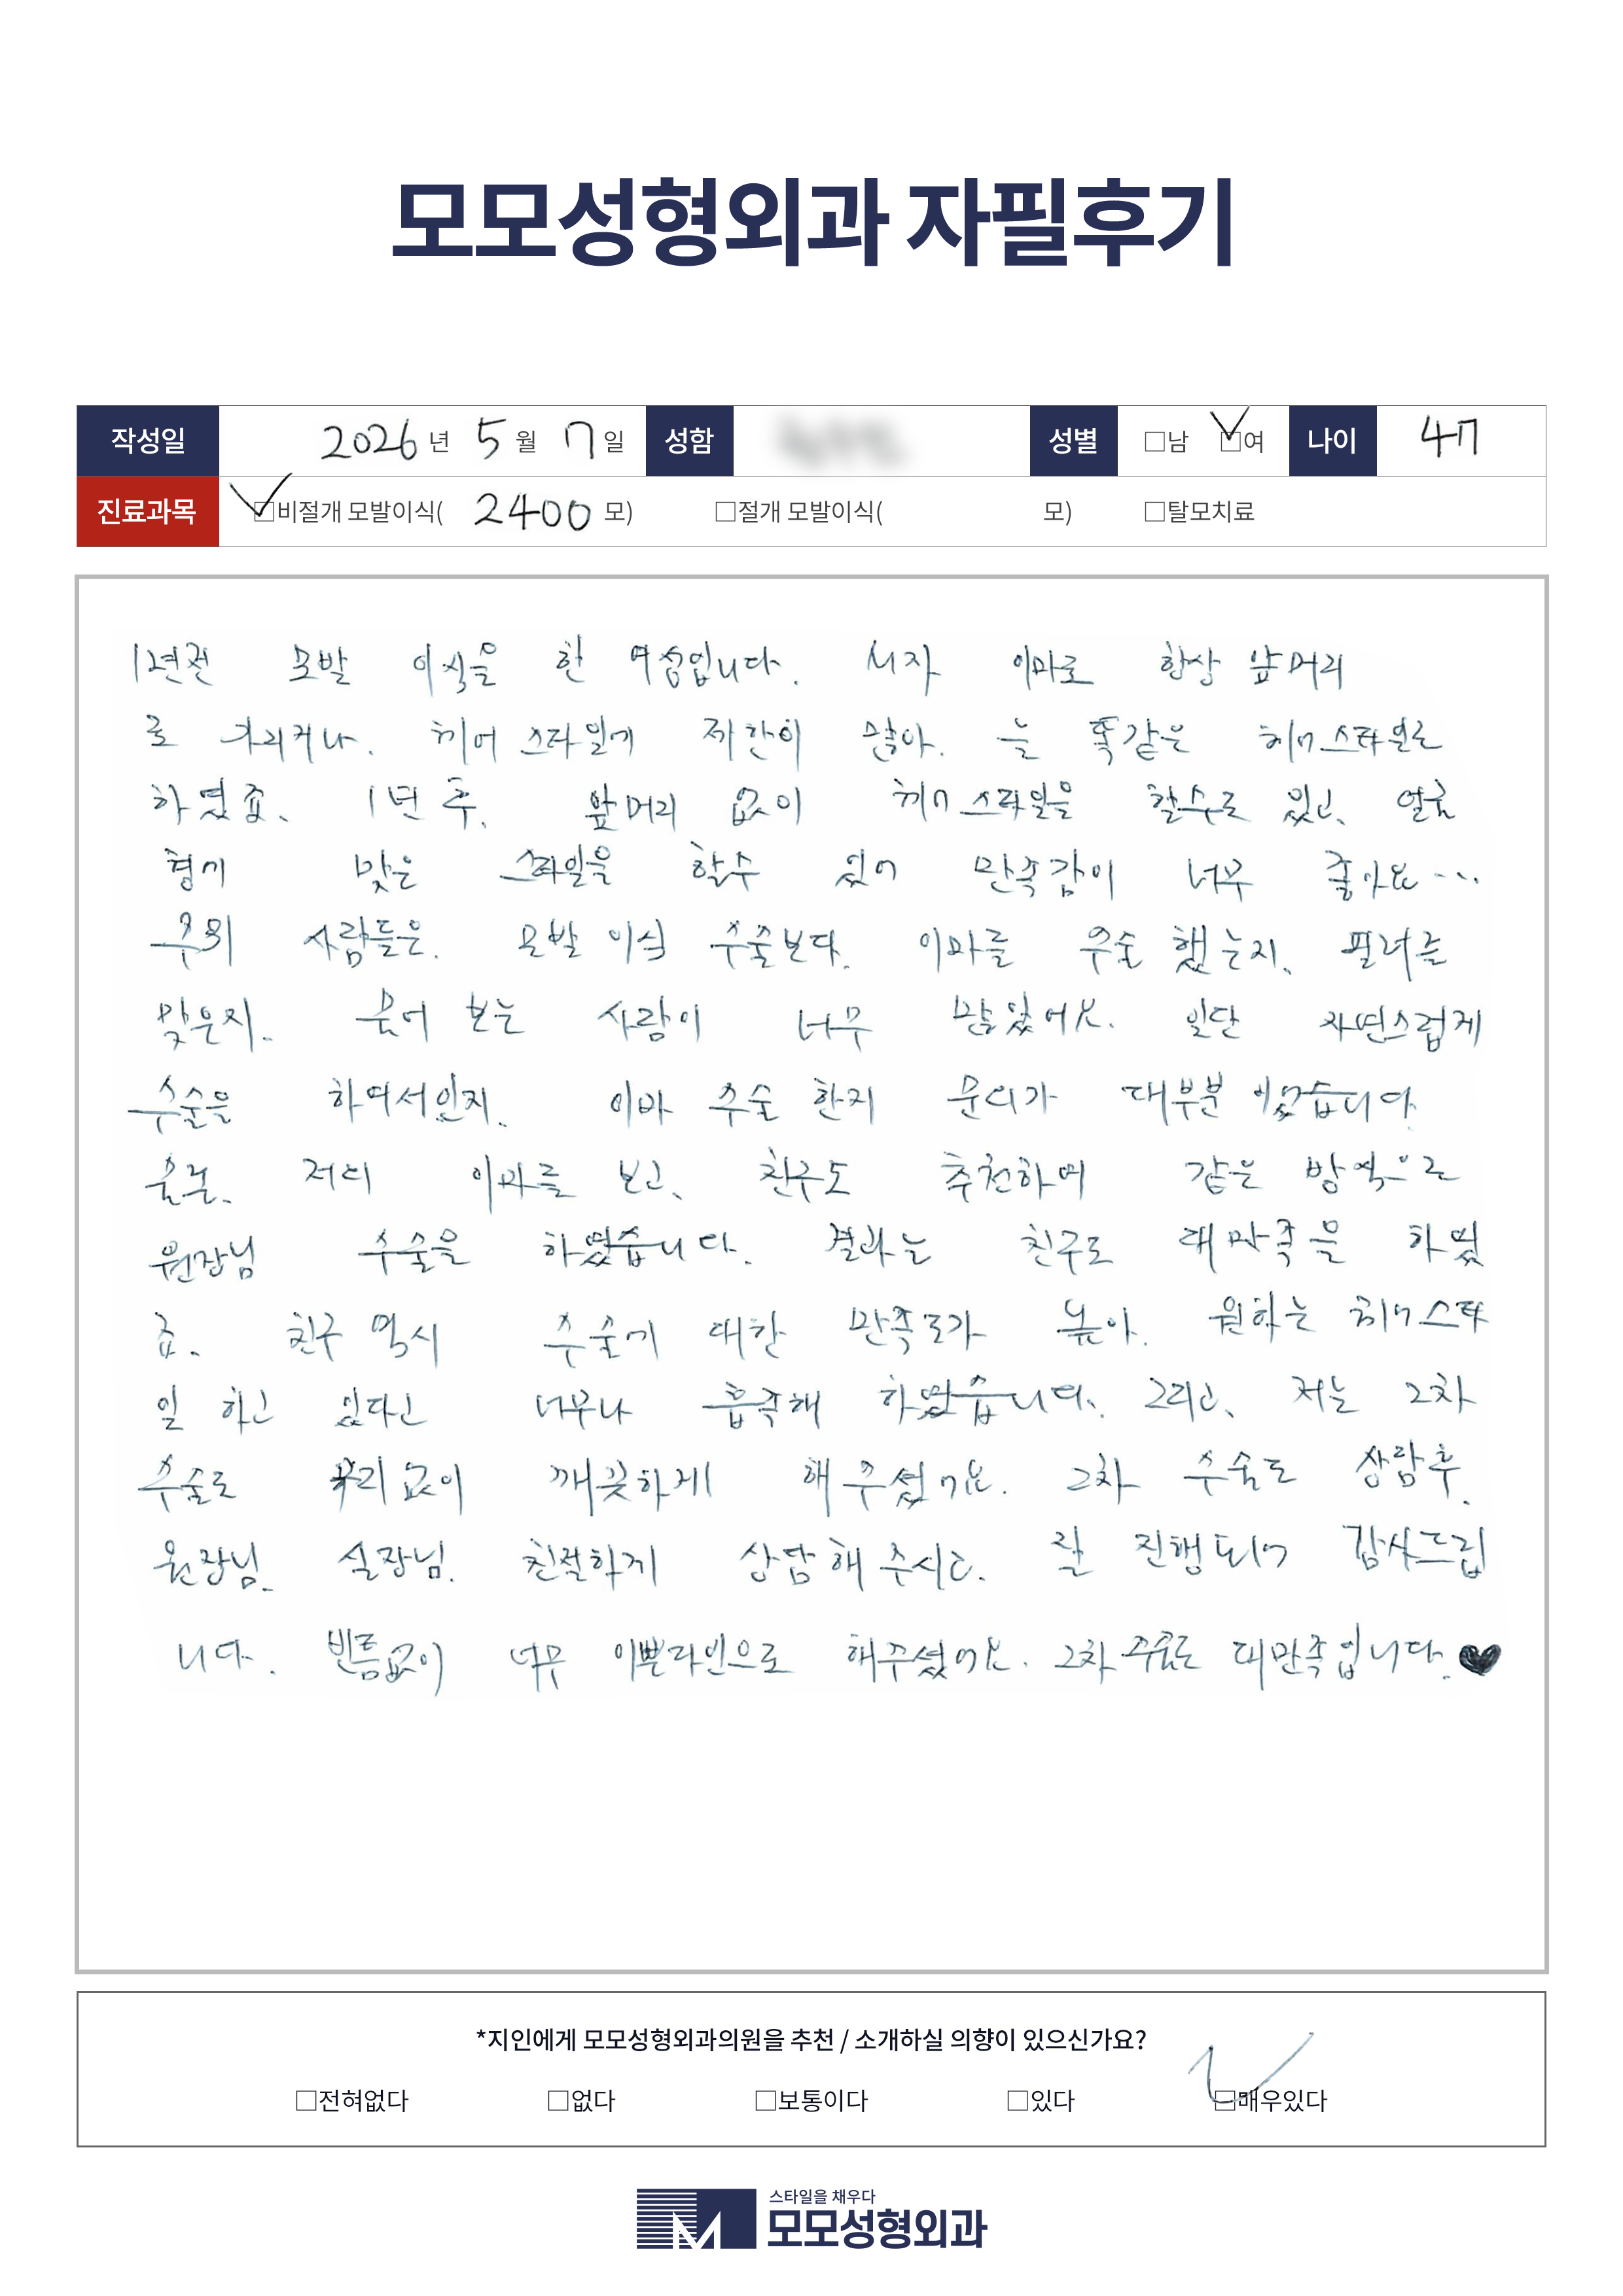 모모성형외과 자필후기
작성일 2026 년 5 월 7 일 성함 성별 □남 □여 나이 47
진료과목 □비절개 모발이식( 2400 모) □절개 모발이식( 모) □탈모치료
1년전 모발 이식을 한 여성입니다. M자 이마로 항상 앞머리
로 가리거나. 헤어 스타일에 제한이 많아. 늘 똑같은 헤어스타일로
하였죠. 1년 후. 앞머리 없이 헤어스타일을 할수도 있고, 얼굴
형에 맞은 스타일을 할수 있어 만족감이 너무 좋아요...
주위 사람들은. 모발 이식 수술보다. 이마를 수술 했는지. 필러를
맞은지. 물어 보는 사람이 너무 많았어요. 일단 자연스럽게
수술을 하여서인지. 이마 수술 한지 문의가 대부분 이었습니다.
물론. 저의 이마를 보고, 친구도 추천하여 같은 방식으로
원장님 수술을 하였습니다. 결과는 친구도 대만족을 하였
죠. 친구 역시 수술에 대한 만족도가 높아. 원하는 헤어스타
일 하고 있다고 너무나 흡족해 하였습니다. 그리고, 저는 2차
수술도 무리없이 깨끗하게 해주셨어요. 2차 수술도 상담후.
원장님. 실장님. 친절하게 상담해 주시고. 잘 진행되어 감사드립
니다. 빈틈없이 너무 이쁜라인으로 해주셨어요. 2차 수술도 대만족입니다.♥
*지인에게 모모성형외과의원을 추천 / 소개하실 의향이 있으신가요?
□전혀없다 □없다 □보통이다 □있다 □매우있다
스타일을 채우다
모모성형외과